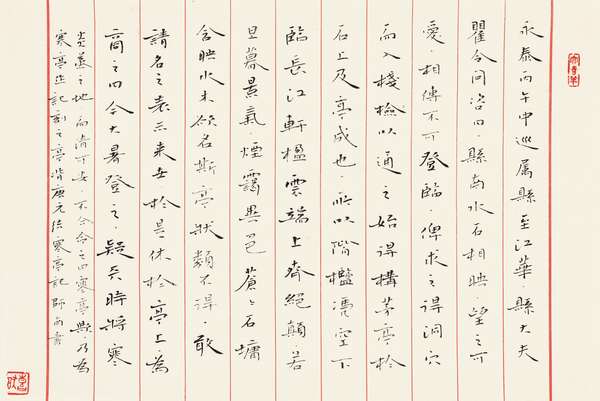 永泰丙午中巡屬縣至江華縣大夫
瞿令问咨曰縣南水石相映望之可
愛相傳不可登臨俾求之得洞穴
而入棧險以通之始得構茅亭於
石上及亭成也所以階檻憑空下
臨長江軒楹雲端上齊絕顛若
旦暮景氣煙靄異色蒼々石墉
含映水木欲名斯亭狀類不得敢
請名之表示来世於是休於亭上為
商之曰今大暑登之疑天時將寒
炎蒸之地而清可安不合命之曰寒亭歟乃為
寒亭作記刻之亭背唐元結寒亭記